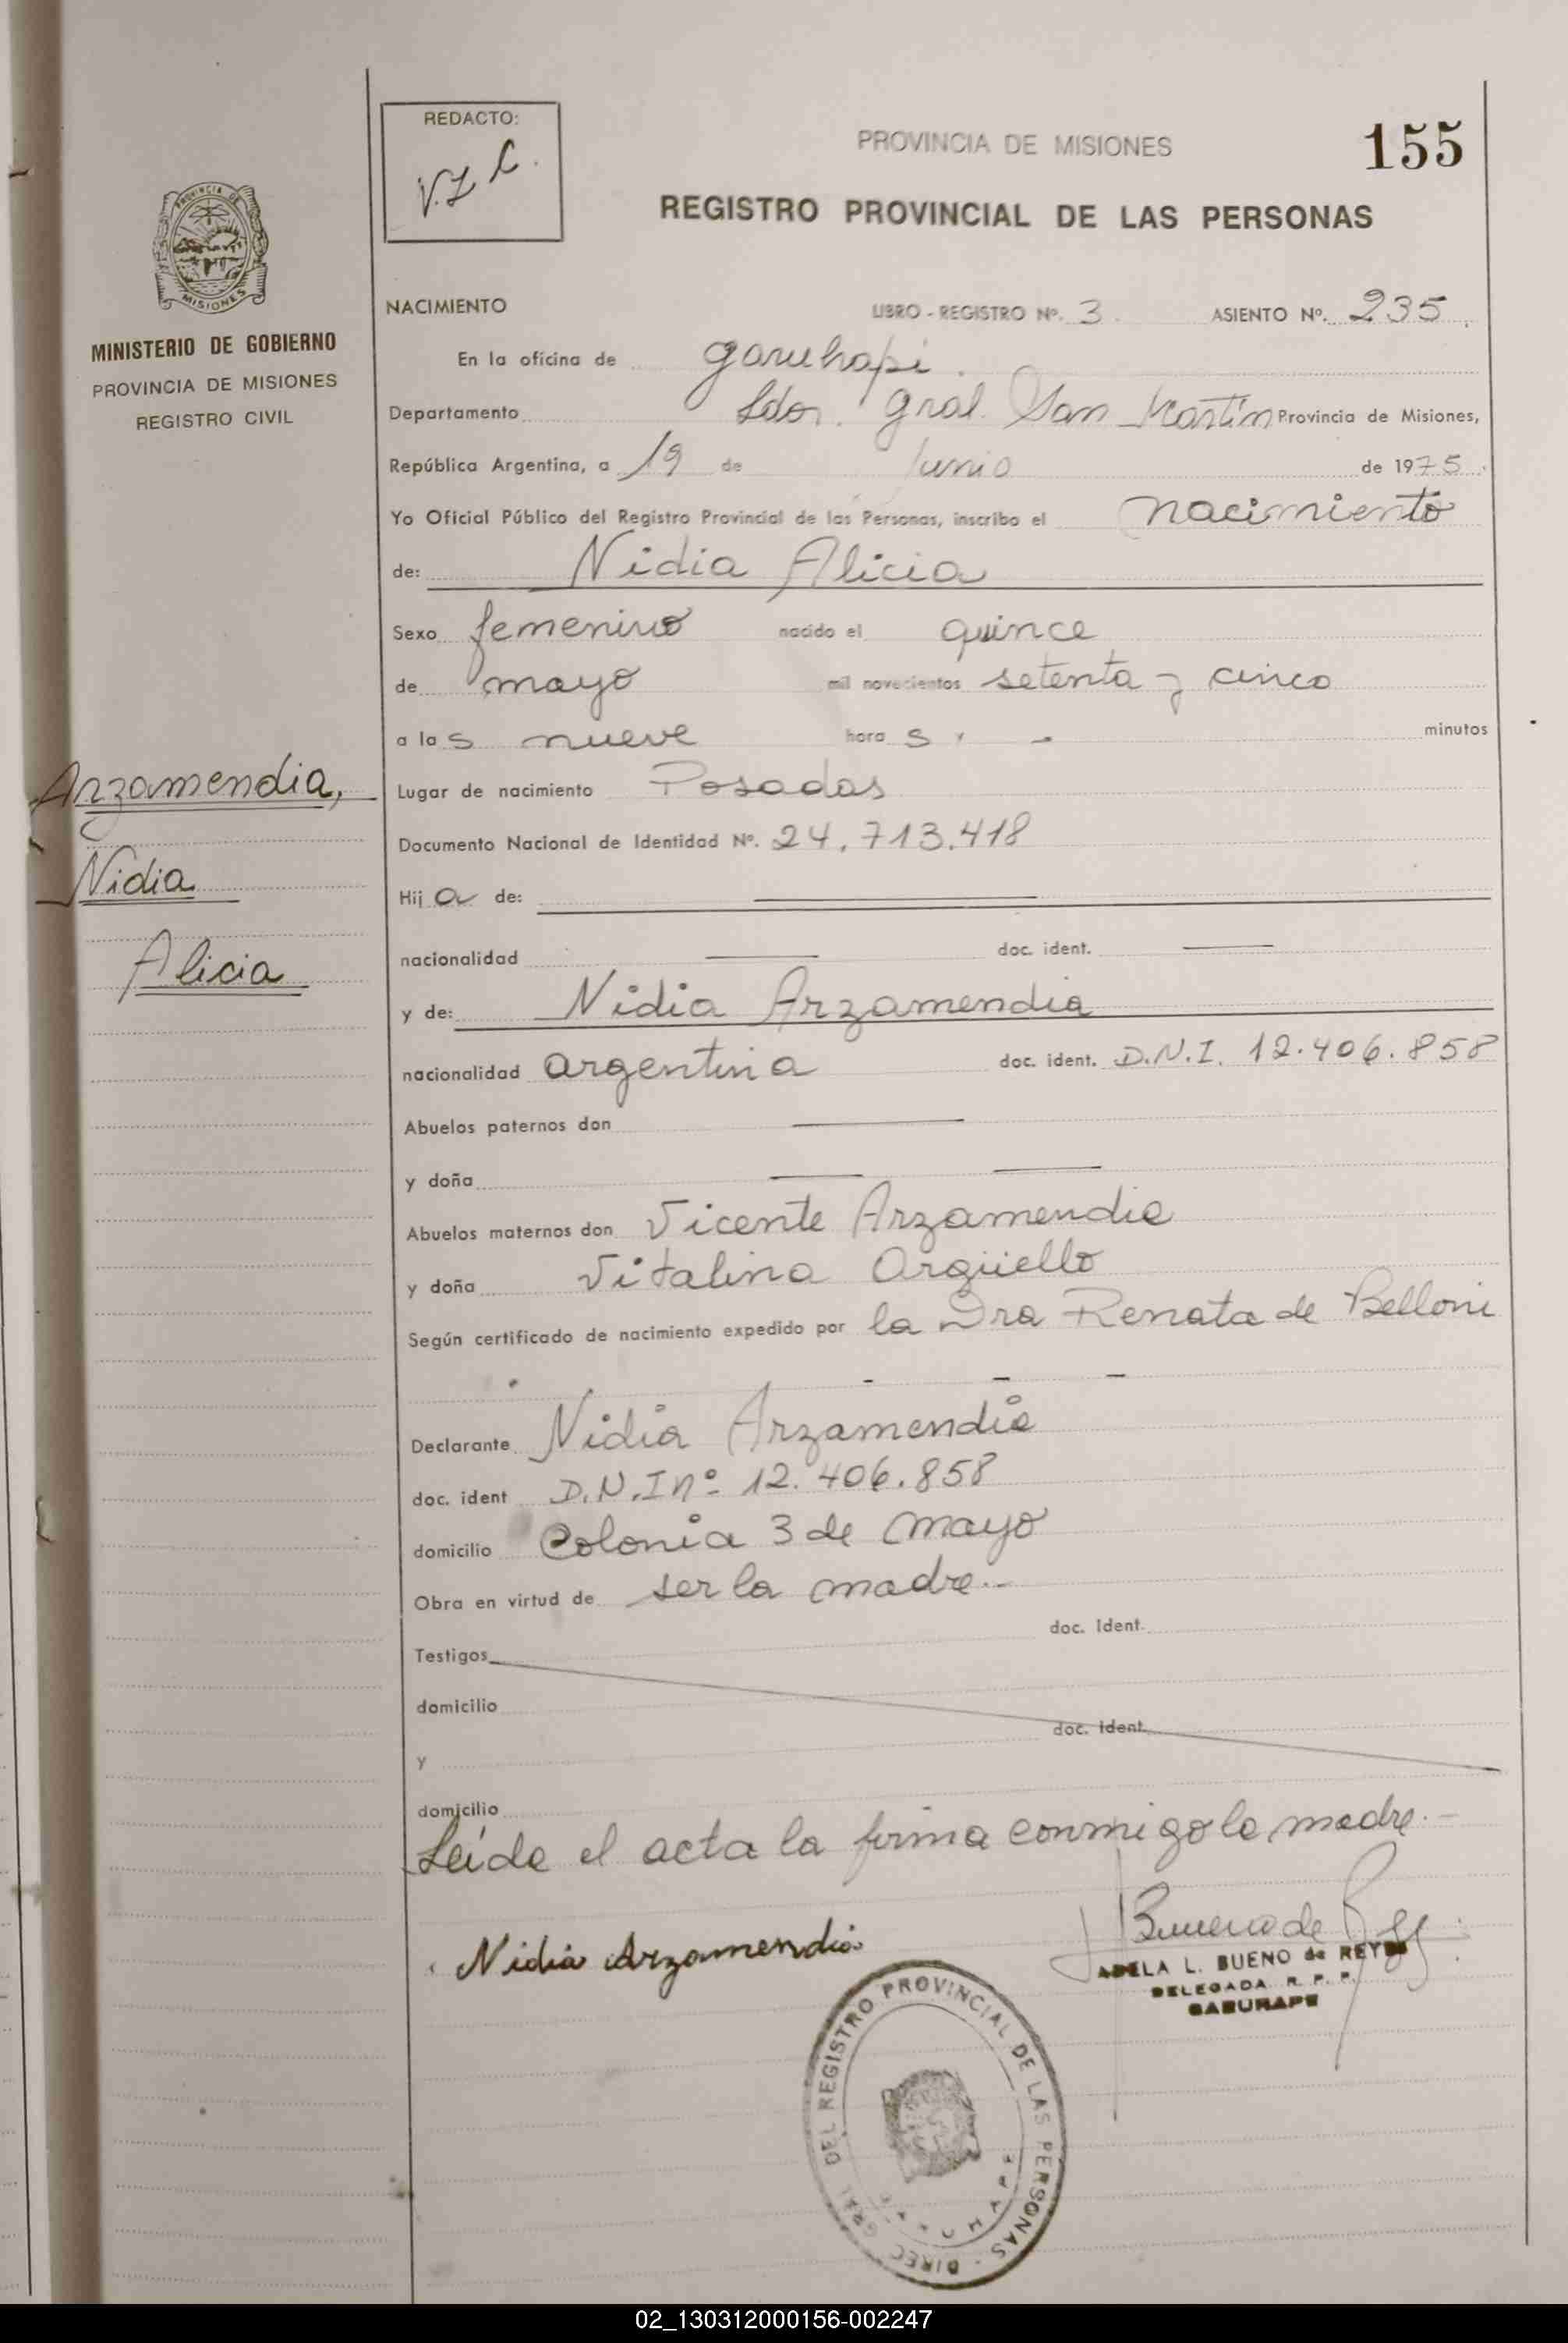 REDACTO:
V.L.C.
PROVINCIA DE MISIONES
155
REGISTRO PROVINCIAL DE LAS PERSONAS
PROVINCIA DE
MISIONES
MINISTERIO DE GOBIERNO
PROVINCIA DE MISIONES
REGISTRO CIVIL
NACIMIENTO LIBRO - REGISTRO Nº. 3 ASIENTO Nº. 235
En la oficina de garuhapi
Departamento Ldor. Gral. San Martín Provincia de Misiones,
República Argentina, a 19 de Junio de 1975
Yo Oficial Público del Registro Provincial de las Personas, inscribo el nacimiento
de: Nidia Alicia
Sexo femenino nacido el quince
de mayo mil novecientos setenta y cinco
a las nueve horas y - minutos
Arzamendia,
Nidia
Alicia
Lugar de nacimiento Posadas
Documento Nacional de Identidad Nº. 24.713.418
Hija de:
nacionalidad doc. ident.
y de: Nidia Arzamendia
nacionalidad argentina doc. ident. D.N.I. 12.406.858
Abuelos paternos don
y doña
Abuelos maternos don Vicente Arzamendia
y doña Vitalina Argüello
Según certificado de nacimiento expedido por la Dra Renata de Belloni
- - -
Declarante Nidia Arzamendia
doc. ident D.N.I nº 12.406.858
domicilio Colonia 3 de mayo
Obra en virtud de ser la madre.-
doc. Ident.
Testigos
domicilio
doc. Ident.
y
domicilio
Leída el acta la firma conmigo la madre.-
Nidia Arzamendia
Bueno de Reyes
ADELA L. BUENO de REYES
DELEGADA R. P. P.
GARUHAPE
DIREC. GRAL. DEL REGISTRO PROVINCIAL DE LAS PERSONAS
GARUHAPE
02_130312000156-002247